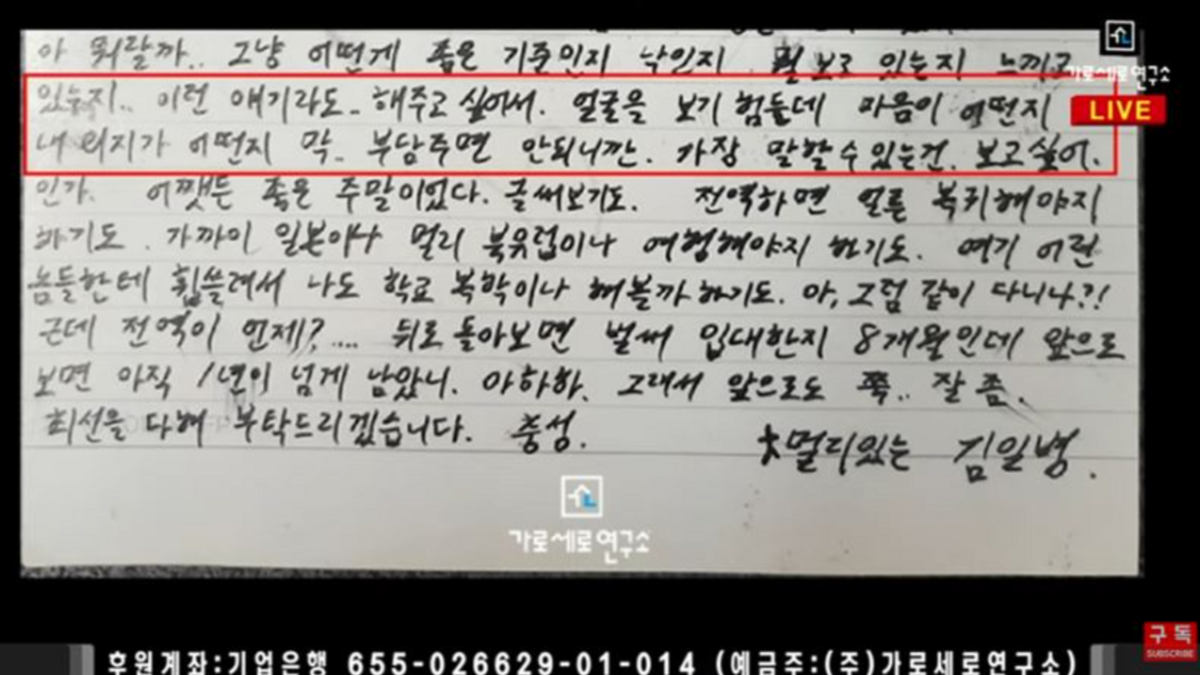 아 뭐랄까.. 그냥 어떤게 좋은 기준인지 낙인지. 뭘 보고 있는지 느끼고
가로세로연구소
있는지.. 이런 얘기라도.. 해주고 싶어서. 얼굴을 보기 힘들데 마음이 어떤지
LIVE
내 의지가 어떤지 막.. 부담주면 안되니깐. 가장 말할 수 있는건. 보고싶어.
인가. 어쨋든 좋은 주말이었다. 글써보기도. 전역하면 얼른 복귀해야지
하기도. 가까이 일본이나 멀리 북유럽이나 여행해야지 하기도. 여기 어린
놈들한테 휩쓸려서 나도 학교 복학이나 해볼까하기도. 아, 그럼 같이 다니나?!
근데 전역이 언제?.... 뒤로 돌아보면 벌써 입대한지 8개월인데 앞으로
보면 아직 1년이 넘게 남았니. 아하하. 그래서 앞으로도 쭉.. 잘 좀.
최선을 다해 부탁드리겠습니다. 충성.
멀리있는 김일병.
가로세로연구소
구독
SUBSCRIBE
후원계좌:기업은행 655-026629-01-014 (예금주:(주)가로세로연구소)